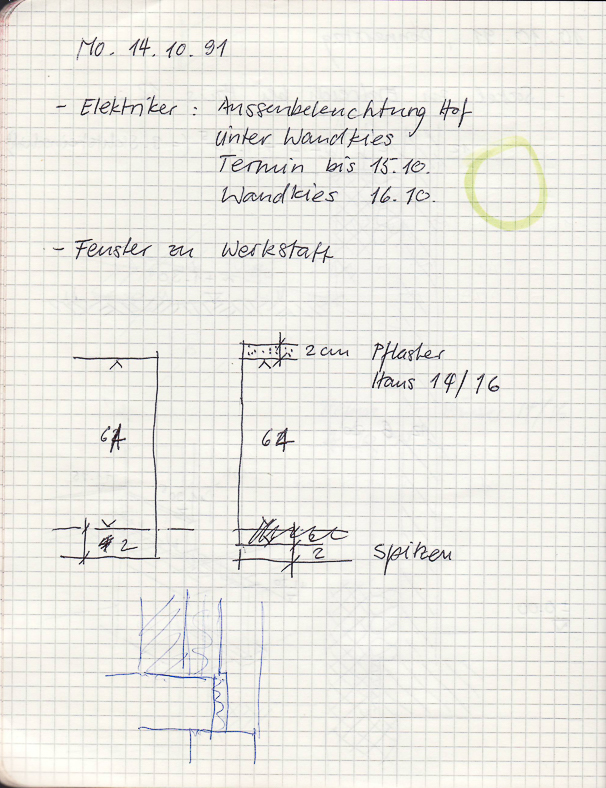 Mo. 14.10.91
- Elektriker : Aussenbeleuchtung Hof
unter Wandkies
Termin bis 15.10.
Wandkies 16.10.
- Fenster zu Werkstatt
2 cm Pflaster
Haus 14/16
2
2
Spitzen